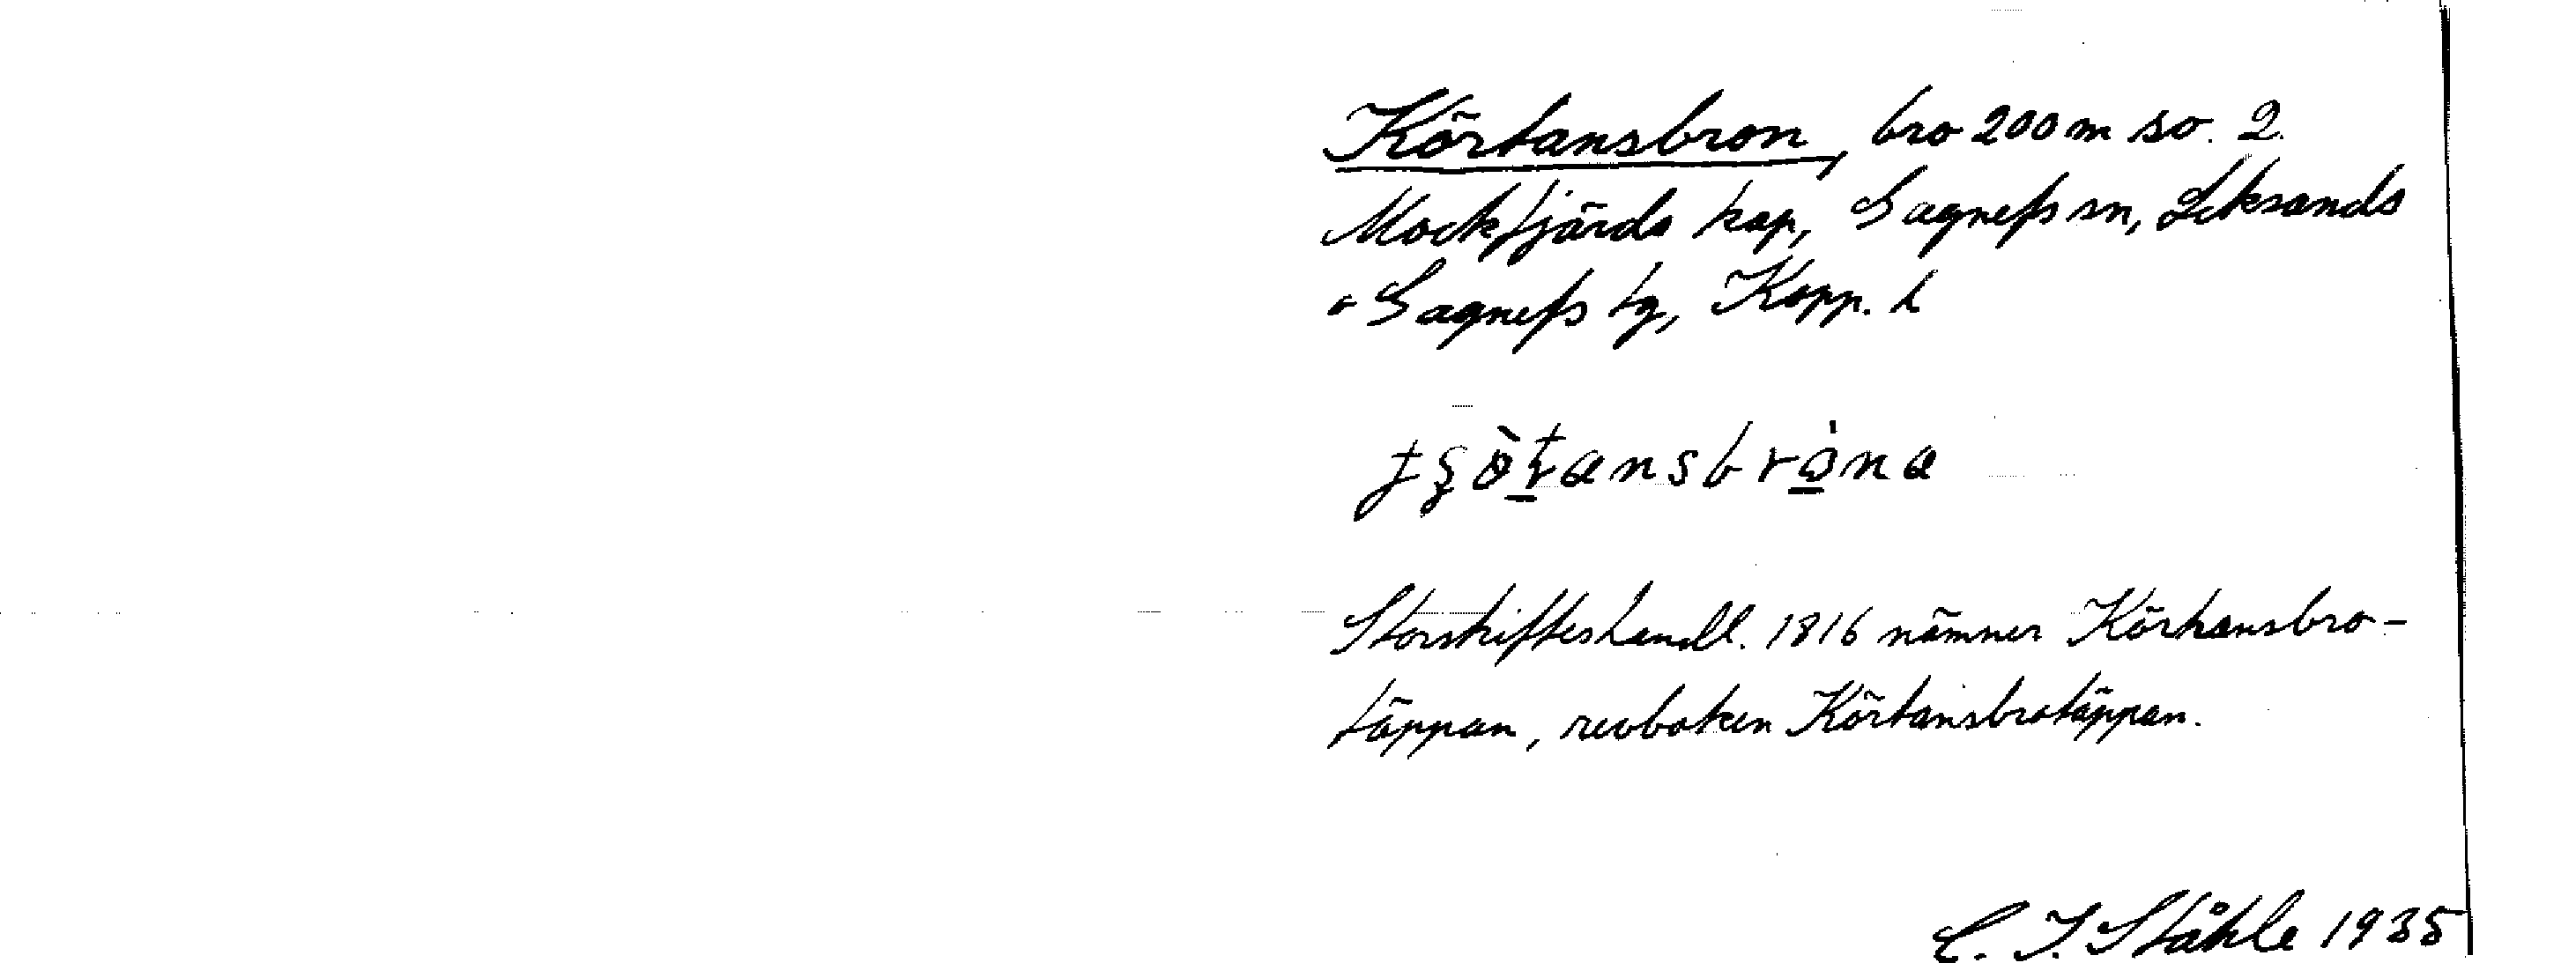 Körtansbron, bro 200 m so. 2.
Mockfjärds kap, Gagnefs sn, Leksands
o Gagnefs tg, Kopp. l
Storskifteshandl. 1816 nämner Körhansbro-
täppan, revboken Körtansbrotäppan.
C. I. Ståhle 1935